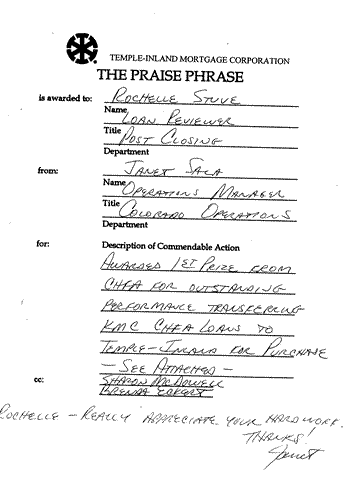 TEMPLE-INLAND MORTGAGE CORPORATION
THE PRAISE PHRASE
is awarded to: ROCHELLE STUVE
Name
LOAN REVIEWER
Title
POST CLOSING
Department
from: JANET SALA
Name
OPERATIONS MANAGER
Title
COLORADO OPERATIONS
Department
for: Description of Commendable Action
AWARDED 1ST PRIZE FROM
CHFA FOR OUTSTANDING
PERFORMANCE TRANSFERRING
KMC CHFA LOANS TO
TEMPLE-INLAND FOR PURCHASE
- SEE ATTACHED -
cc: SHARON MCDOWELL
BRENDA ECKERT
ROCHELLE - REALLY APPRECIATE YOUR HARD WORK.
THANKS!
Janet